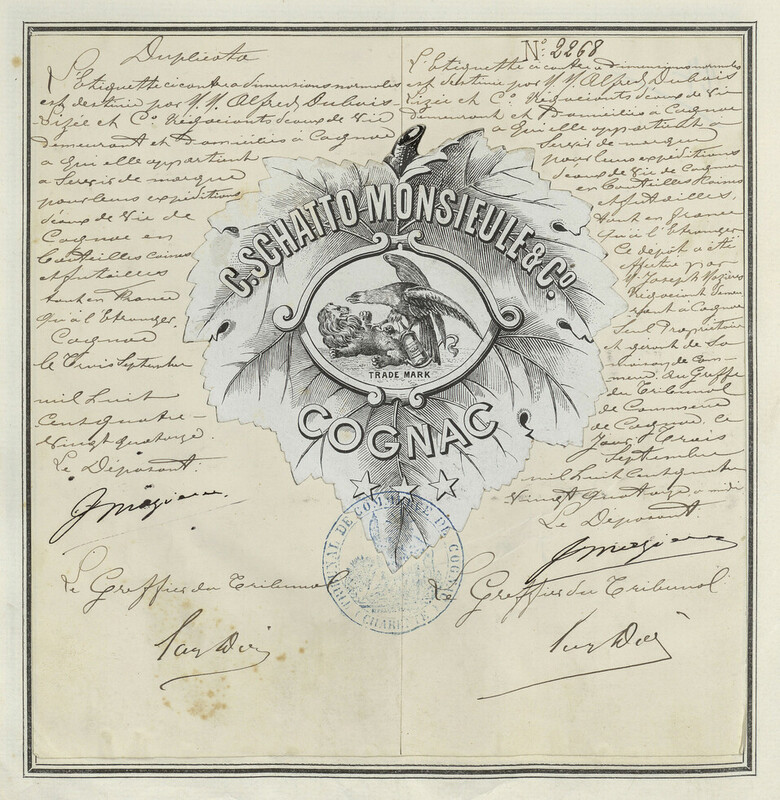 Duplicata
L'Etiquette ci contre a dimensions normales
est destinée par M.M. Alfred Dubois
Lizée et Cº Négociants d'eaux de Vie
demeurant et Domiciliés à Cognac
a qui elle appartient
a Servir de marque
pour leurs expéditions
d'eaux de Vie de
Cognac en
bouteilles caisses
et futailles
tant en France
qu'à l'Etranger.
Cognac
le Trois Septembre
mil huit
Cent quatre-
vingt quatorze.
Le Déposant.
Le Greffier du Tribunal
C. SCHATTO MONSIEULE & Cº
TRADE MARK
COGNAC
TRIBUNAL DE COMMERCE DE COGNAC
CHARENTE
Nº 2268
L'Etiquette ci contre a dimensions normales
est destinée par M.M. Alfred Dubois
Lizée et Cº Négociants d'eaux de Vie
demeurant et Domiciliés à Cognac
a qui elle appartient a
Servir de marque
pour leurs expéditions
d'eaux de Vie de Cognac
en bouteilles Caisses
et futailles,
tant en France
qu'à l'Etranger
Ce dépôt a été
effectué par
M. Joseph
Négociant demeu
rant à Cognac
Seul Propriétaire
et gérant de Sa
maison de Com-
merce au Greffe
du Tribunal
de Commerce
de Cognac, ce
Jour Trois
Septembre
mil huit Cent quatre
vingt quatorze a midi
Le Déposant
Le Greffier du Tribunal